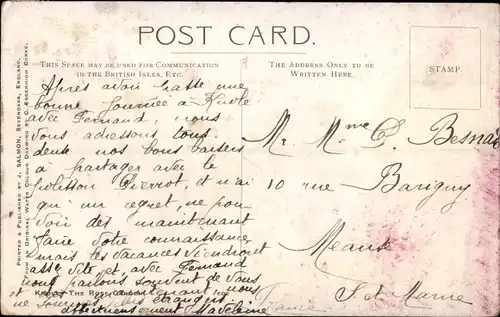 POST CARD.
THIS SPACE MAY BE USED FOR COMMUNICATION
IN THE BRITISH ISLES, ETC.
THE ADDRESS ONLY TO BE
WRITTEN HERE.
STAMP.
PRINTED & PUBLISHED BY J. SALMON, SEVENOAKS, ENGLAND.
FROM AN ORIGINAL WATER COLOUR DRAWING BY C. ESSENHIGH CORKE.
Après avoir passé une
bonne journée à
avec Fernand, nous
vous adressons tous
deux nos bons baisers
à partager avec le
polisson Pierrot, et n'ai
qu'un regret, ne pou-
voir dès maintenant
faire votre connaissance
mais les vacances viendront
assez vite et, avec Fernand
nous parlons souvent de vous
et ne sommes plus étrangers
affectueusement Madeleine
THE ROSE
Mr. Mme Besnar
10 rue Barigny
Meaux
S. et Marne
France